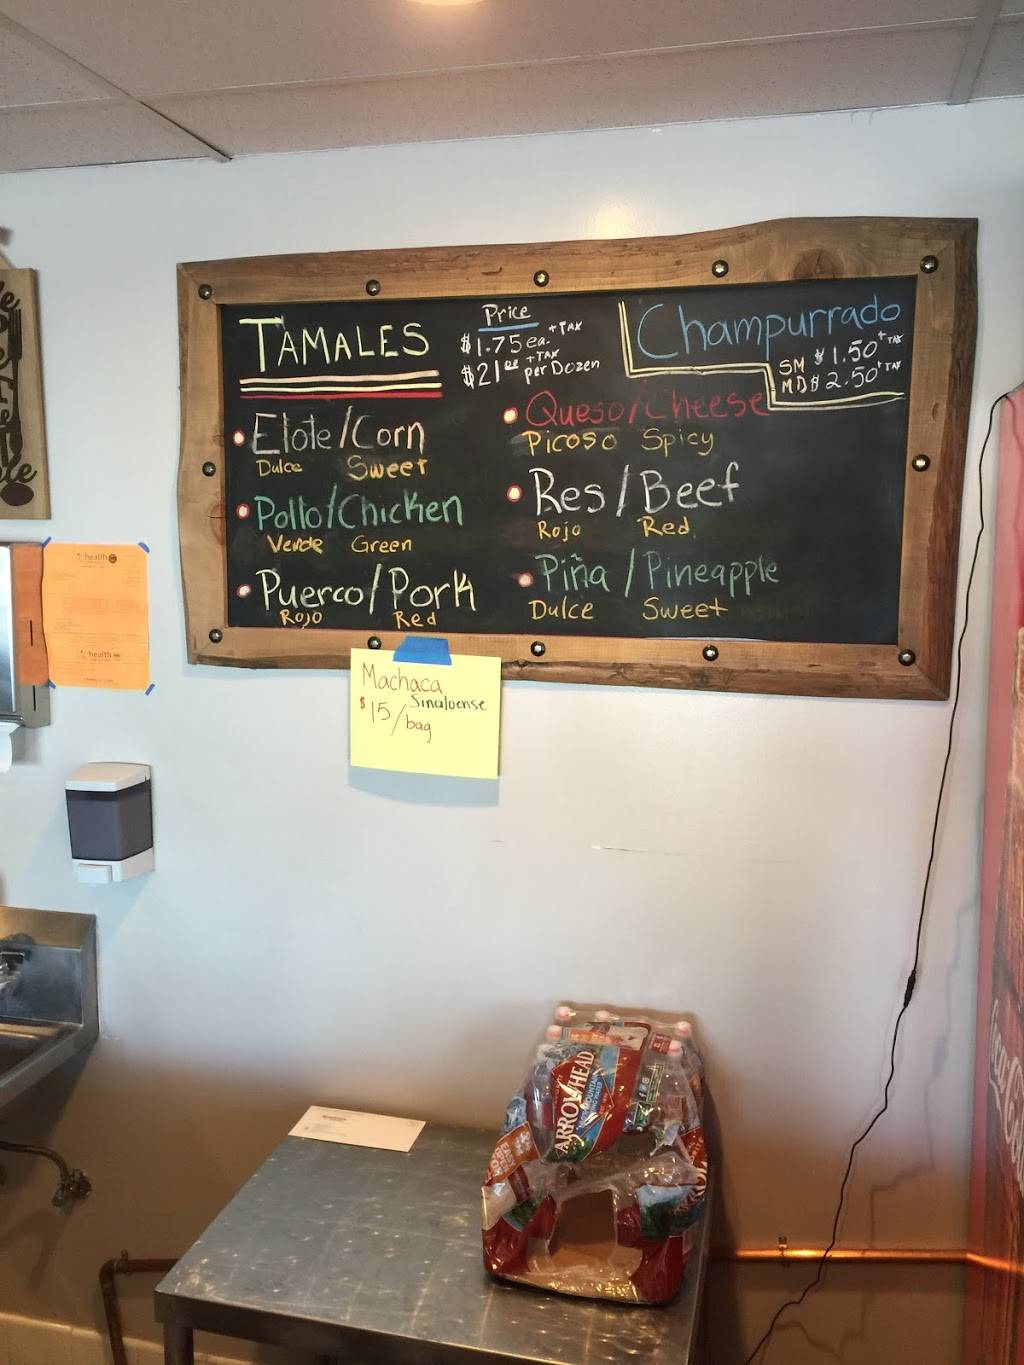 TAMALES
Price
$1.75 ea. + TAX
$21.00 + TAX per Dozen
Champurrado
SM $1.50 + TAX
MD $2.50 + TAX
Elote/Corn
Dulce Sweet
Pollo/Chicken
Verde Green
Puerco/Pork
Rojo Red
Queso/Cheese
Picoso Spicy
Res/Beef
Rojo Red
Piña/Pineapple
Dulce Sweet
Machaca
Sinaloense
$15/bag
health
health
ARROWHEAD
Coca-Cola